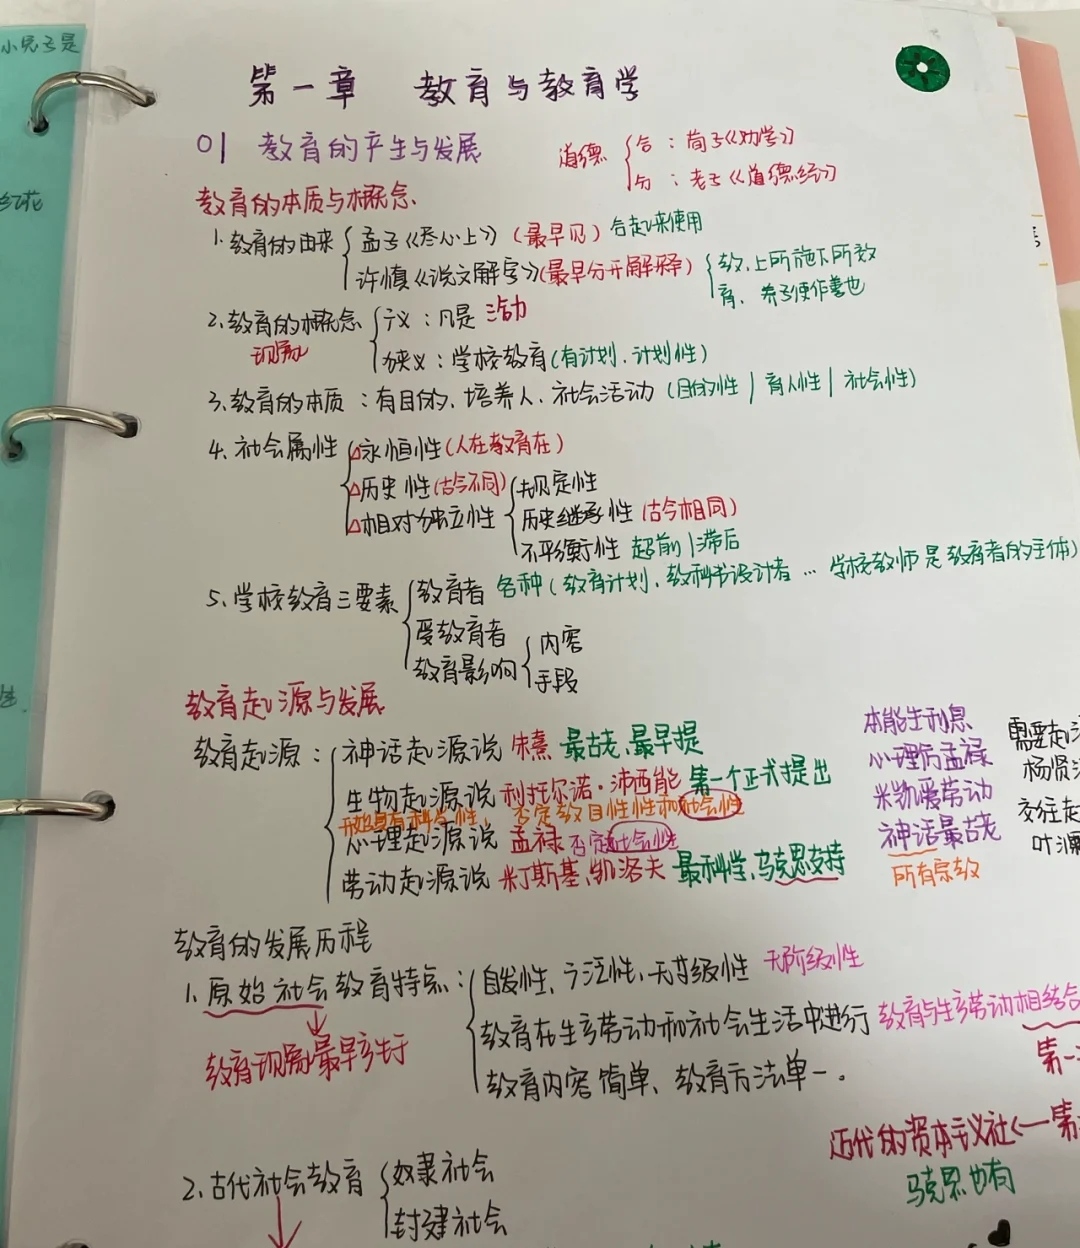 小兔子是
红花
第一章 教育与教育学
01 教育的产生与发展
道德 合：荀子《劝学》
分：老子《道德经》
教育的本质与概念、
1.教育的由来 孟子《尽心上》（最早见）合起来使用
许慎《说文解字》（最早分开解释） 教、上所施下所效
育、养子使作善也
2.教育的概念 广义：凡是 活动
现象
狭义：学校教育（有计划、计划性）
3.教育的本质：有目的、培养人、社会活动（目的性｜育人性｜社会性）
4.社会属性 △永恒性（人在教育在）
△历史性（古今不同）
△相对独立性 规定性
历史继承性（古今相同）
不平衡性 超前｜滞后
5.学校教育三要素 教育者 各种（教育计划、教科书设计者…学校教师是教育者的主体）
受教育者
教育影响 内容
手段
教育起源与发展
教育起源：神话起源说 朱熹 最古老、最早提
生物起源说 利托尔诺·沛西能 第一个正式提出
开始具有科学性， 否定教目性性和社会性
心理起源说 孟禄 否定社会性
劳动起源说 米丁斯基、凯洛夫 最科学、马克思支持
本能生利息
心理仿孟禄
米凯爱劳动
神话最古老
所有宗教
需要起
杨贤
交往起
叶澜
教育的发展历程
1.原始社会教育特点：自发性、广泛性、无等级性 无阶级性
教育在生产劳动和社会生活中进行 教育与生产劳动相结合
教育现象最早产于
教育内容简单、教育方法单一。
第一
近代的资本主义社←第
马克思也有
2.古代社会教育 奴隶社会
封建社会